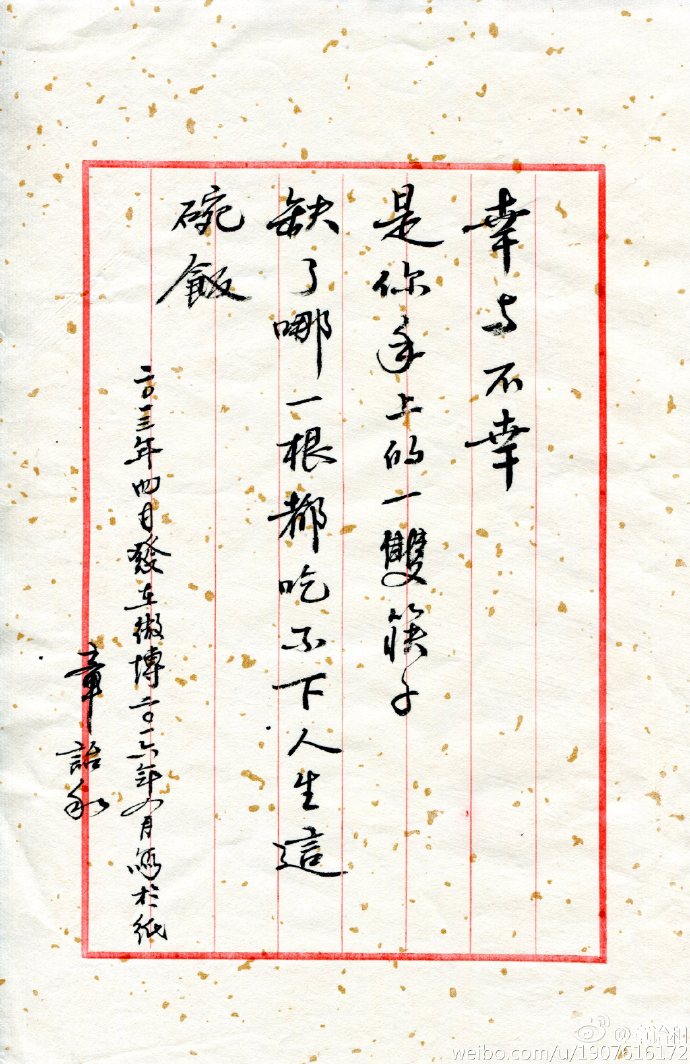 幸与不幸
是你手上的一雙筷子
缺了哪一根都吃不下人生這
碗飯
二〇一三年四月發在微博二〇一六年八月寫於紙
章詒和
@章诒和
weibo.com/u/1907616172